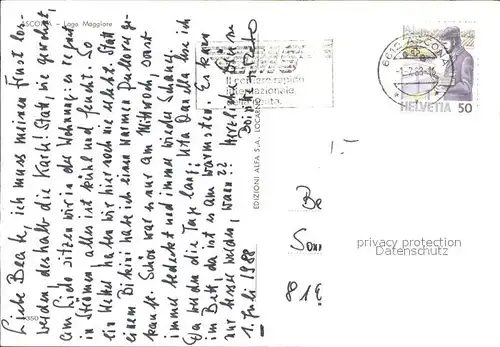 ASCONA - Lago Maggiore
Liebe Beate, ich muss meinen Frust los-
werden, deshalb die Karte! Statt, wie gewohnt,
am Lido sitzen wir in der Wohnung: es regnet
in Strömen, alles ist kühl und feucht. So
ein Wetter haben wir hier noch nie erlebt. Statt
einem Bikini habe ich einen warmen Pullover ge-
kauft. Schön war es nur am Mittwoch, sonst
immer bedeckt und immer wieder Schauer.
Da werden die Tage lang; Uta Danella lese ich
im Bett, da ist es am wärmsten. Es kann
nur besser werden, wann??
Herzliche Grüsse
1. Juli 1988
350
EDIZIONI ALFA S.A. LOCARNO
6612 ASCONA
HELVETIA 50
1.-
Be
Sonn
819
privacy protection
Datenschutz